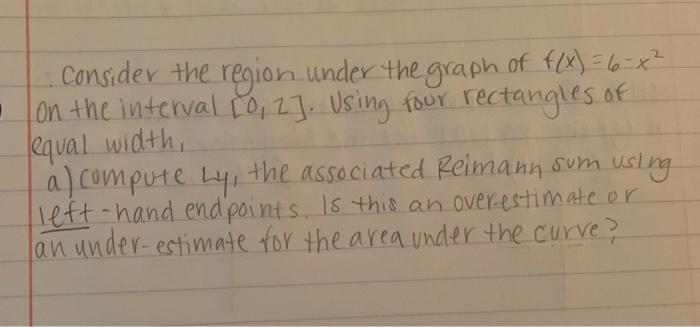 Consider the region under the graph of f(x) = 6-x²
on the interval [0,2]. Using four rectangles of
equal width,
a) compute L4, the associated Reimann sum using
left-hand endpoints. Is this an overestimate or
an under-estimate for the area under the curve?